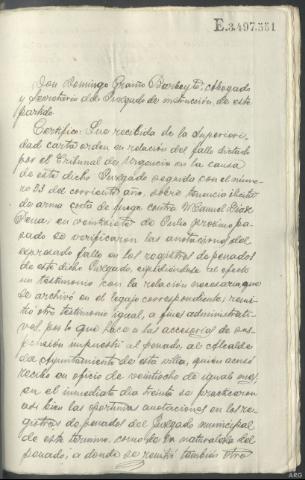 E.3.497.551
Don Domingo Barbeyto, Abogado
y Secretario del Juzgado de instrucción de este
partido.
Certifico: Que recibida de la Superiori-
dad carta orden en relación del fallo dictado
por el Tribunal de Urgencia en la causa
de este dicho Juzgado seguida con el núme-
ro 23 del corriente año, sobre tenencia ilícita
de arma corta de fuego contra Manuel
Penas en veintisiete de Julio próximo pa-
sado se verificaron las anotaciones del
expresado fallo en los registros de penados
de este dicho Juzgado, expidiéndose al efecto
un testimonio con la relación necesaria que
se archivó en el legajo correspondiente; remi-
tió otro testimonio igual, a fines administrati-
vos, por lo que hace a las accesorias de sus-
pensión impuesta al penado, al Alcalde
de Ayuntamiento de esta villa, quien acusó
recibo en oficio de veintiocho de igual mes,
en el inmediato día treinta se practicaron
así bien las oportunas anotaciones en los re-
gistros de penados del Juzgado municipal
de este termino como de la naturaleza del
penado, a donde se remitió también otro
ARG